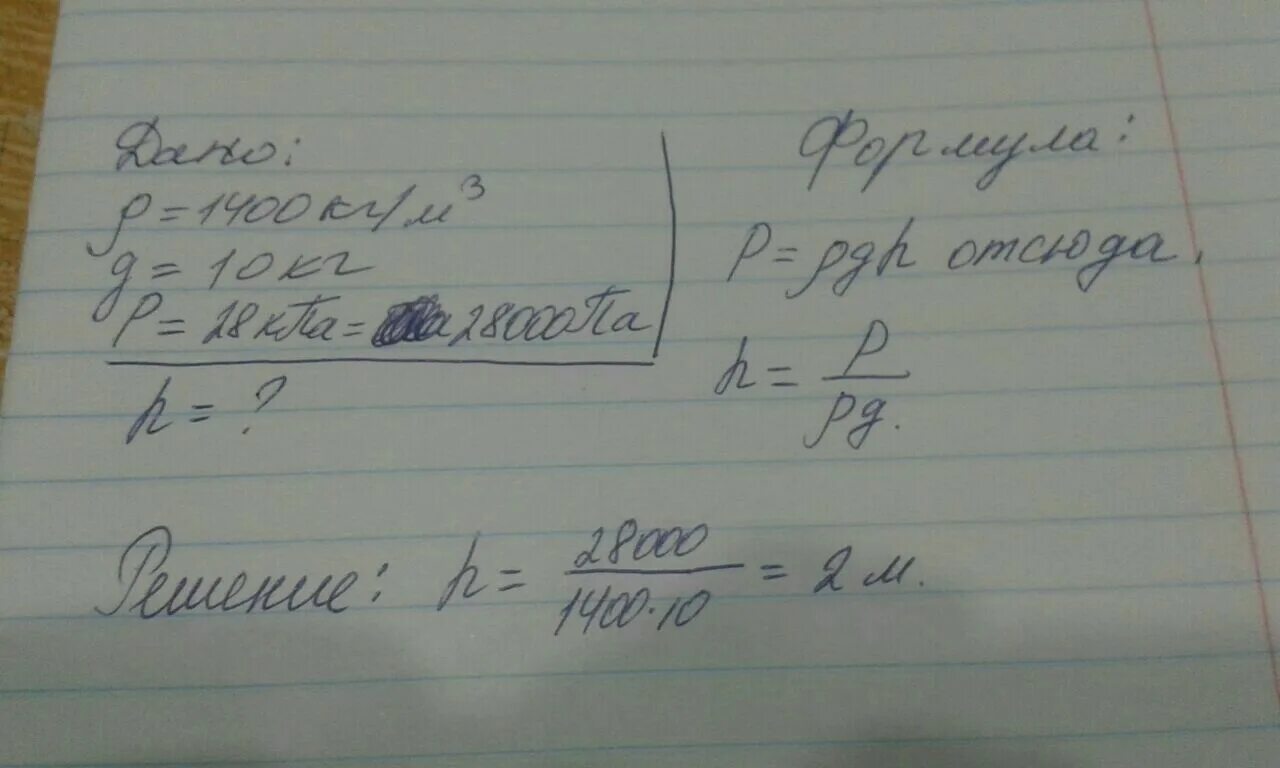 Дано:
ρ = 1400 кг/м³
g = 10 кг
P = 28 кПа = 28000 Па
h = ?
Формула:
P = ρgh отсюда,
h = P / ρg.
Решение: h = 28000 / 1400·10 = 2 м.